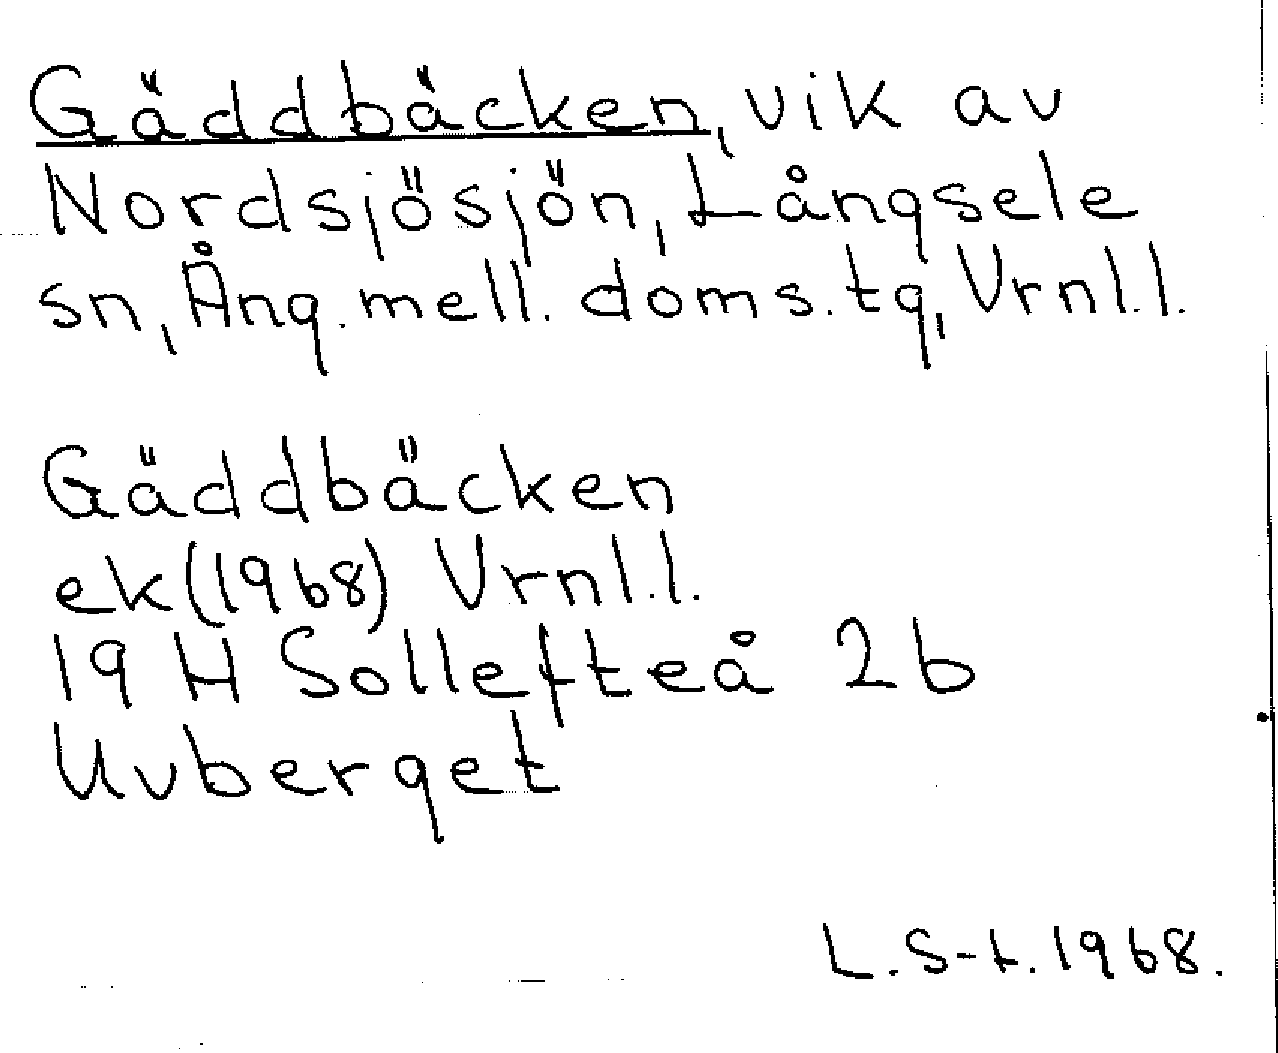 Gäddbäcken, vik av
Nordsjösjön, Långsele
sn, Ång. mell. doms.tg, Vrnl.l.
Gäddbäcken
ek(1968) Vrnl.l.
19 H Sollefteå 2b
Uvberget
L.S-t.1968.